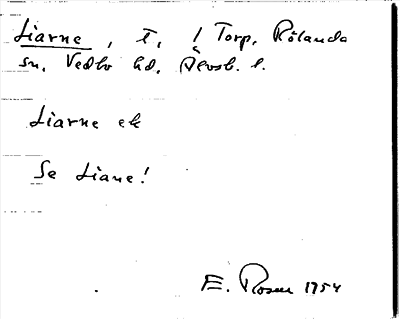 Liarne, t, ! Torp, Rölanda
sn, Vedbo hd, Älvsb. l.
Liarne ek
Se Liane!
E. Rosen 1954